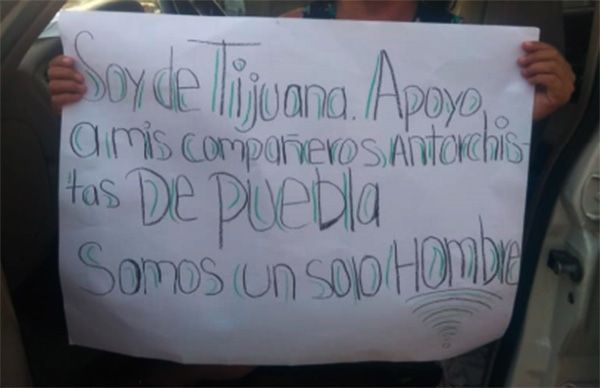 Soy de Tijuana. Apoyo
a mis compañeros Antorchis-
tas De Puebla
Somos un solo Hombre